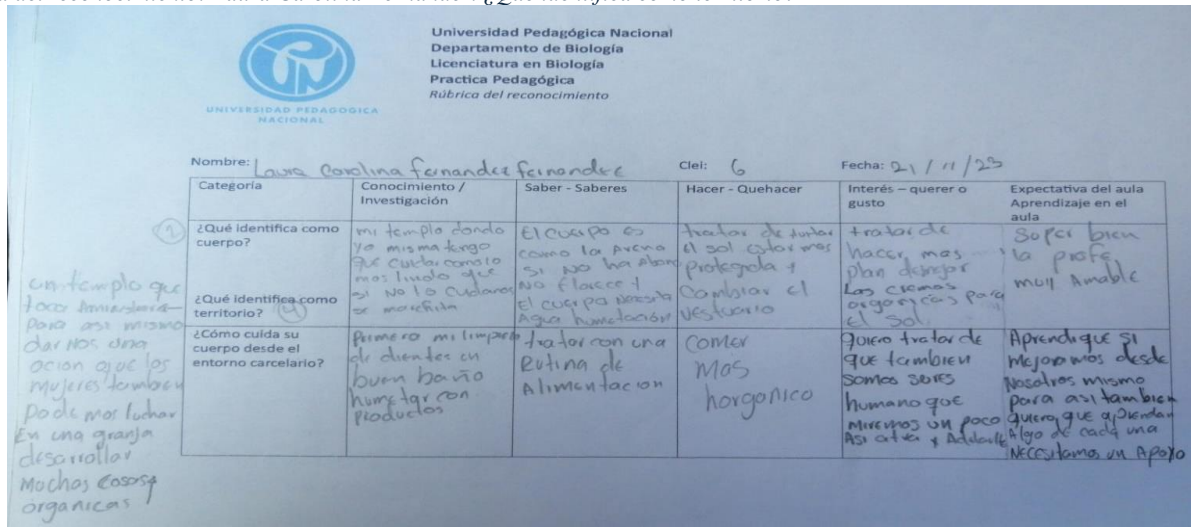 Universidad Pedagógica Nacional
Departamento de Biología
Licenciatura en Biología
Practica Pedagógica
Rúbrica del reconocimiento
UNIVERSIDAD PEDAGOGICA
NACIONAL
Nombre: Laura Carolina fernandez fernandez Clei: 6 Fecha: 21 / 11 / 23
Categoría
Conocimiento /
Investigación
Saber - Saberes
Hacer - Quehacer
Interés – querer o
gusto
Expectativa del aula
Aprendizaje en el
aula
¿Qué identifica como
cuerpo?
¿Qué identifica como
territorio?
mi templo donde
yo misma tengo
que cuidar como lo
mas lindo que
si No lo cuidamos
se marchita
El cuerpo es
como la Arena
si No ha Abono
No florece y
El cuerpo Necesita
Agua humetación
tratar de
el sol estar mas
Protegida y
Cambiar el
vestuario
tratar de
hacer mas
plan
Las cremas
organicas para
El sol.
Super bien
la profe
muy Amable
¿Cómo cuida su
cuerpo desde el
entorno carcelario?
Primero mi limpieza
de dientes un
buen baño
humetar con
productos
tratar con una
Rutina de
Alimentacion
comer
mas
horgonico
quiero tratar de
que tambien
somos seres
humano que
miremos un poco
Asi y Adelante
Aprendi que si
mejoramos desde
Nosotros mismo
para asi tambien
quiero que aprendan
Algo de cada una
Necesitamos un Apoyo
un templo que
toca
para asi mismo
dar Nos una
ocion que los
mujeres tambien
podemos luchar
En una granja
desarrollar
Muchas cosas y
organicas